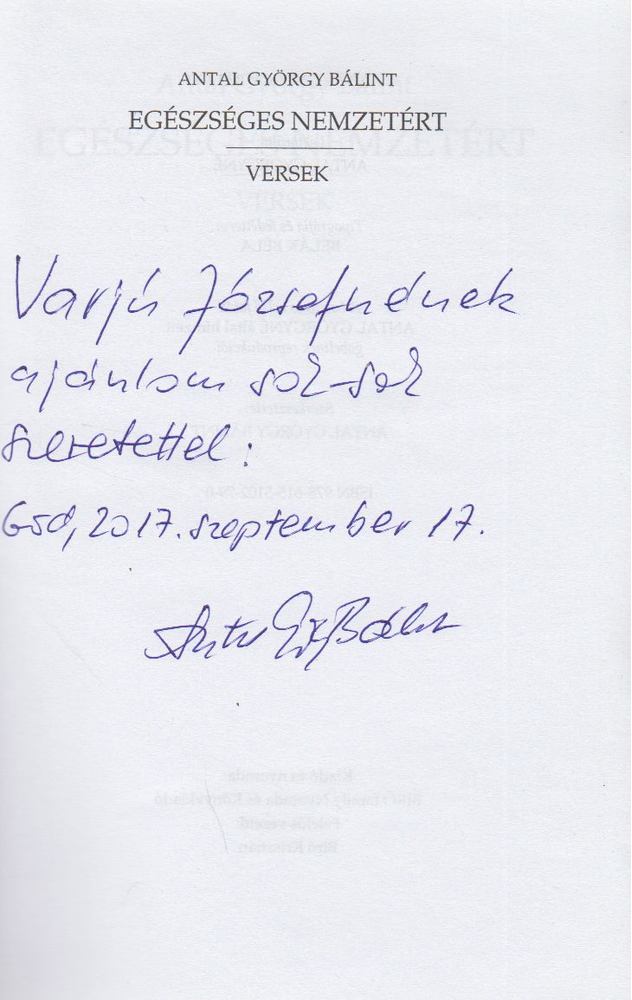 ANTAL GYÖRGY BÁLINT
EGÉSZSÉGES NEMZETÉRT
VERSEK
Varjú Józsefnének
ajánlom sok-sok
szeretettel:
Göd, 2017. szeptember 17.
Antal Gy Bálint